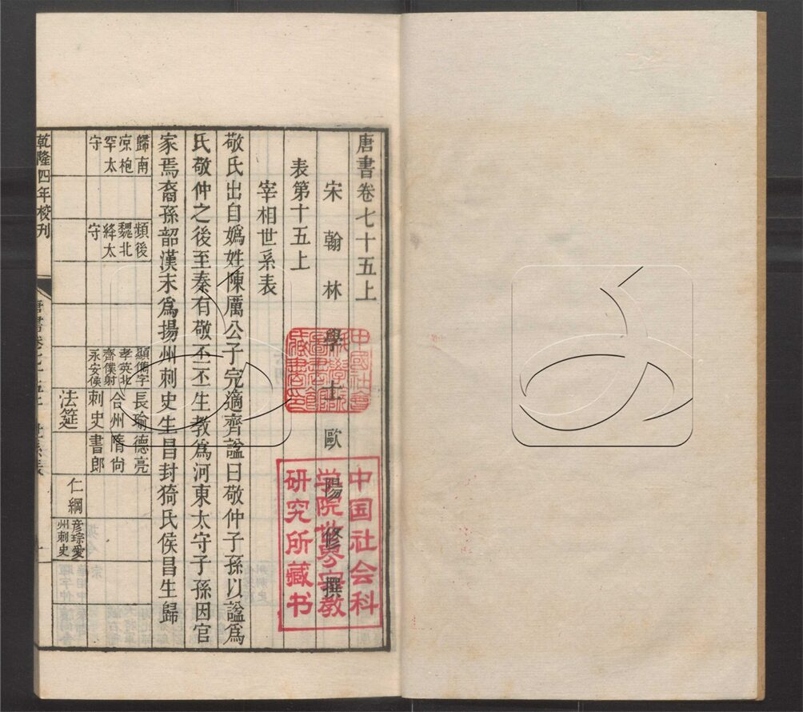 唐書卷七十五上
宋翰林學士歐陽修撰
表第十五上
宰相世系表
敬氏出自媯姓陳厲公子完適齊諡曰敬仲子孫以諡爲
氏敬仲之後至秦有敬丕丕生教爲河東太守子孫因官
家焉裔孫韶漢末爲揚州刺史生昌封猗氏侯昌生歸
歸南
涼枹
罕太
守
頻後
魏北
絳太
守
顯儁字
孝英北
齊僕射
永安侯
長瑜
合州
刺史
德亮
隋尚
書郎
法筵
仁綱
彥琮愛
州刺史
乾隆四年校刊
中国社会科
学院世界宗教
研究所藏书